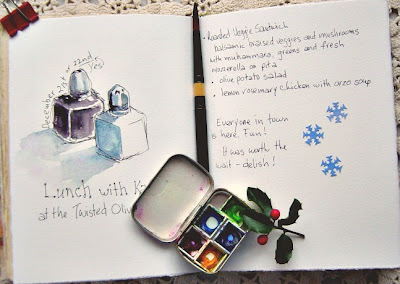 December 21st or 22nd -
Yes!
Lunch with
at the Twisted
• Roasted Veggie Sandwich
balsamic braised veggies and mushrooms
with muhammara, greens and fresh
mozzerella on pita
• olive potato salad
• lemon rosemary chicken with orzo soup
Everyone in town
is here. Fun!
It was worth the
wait - delish!